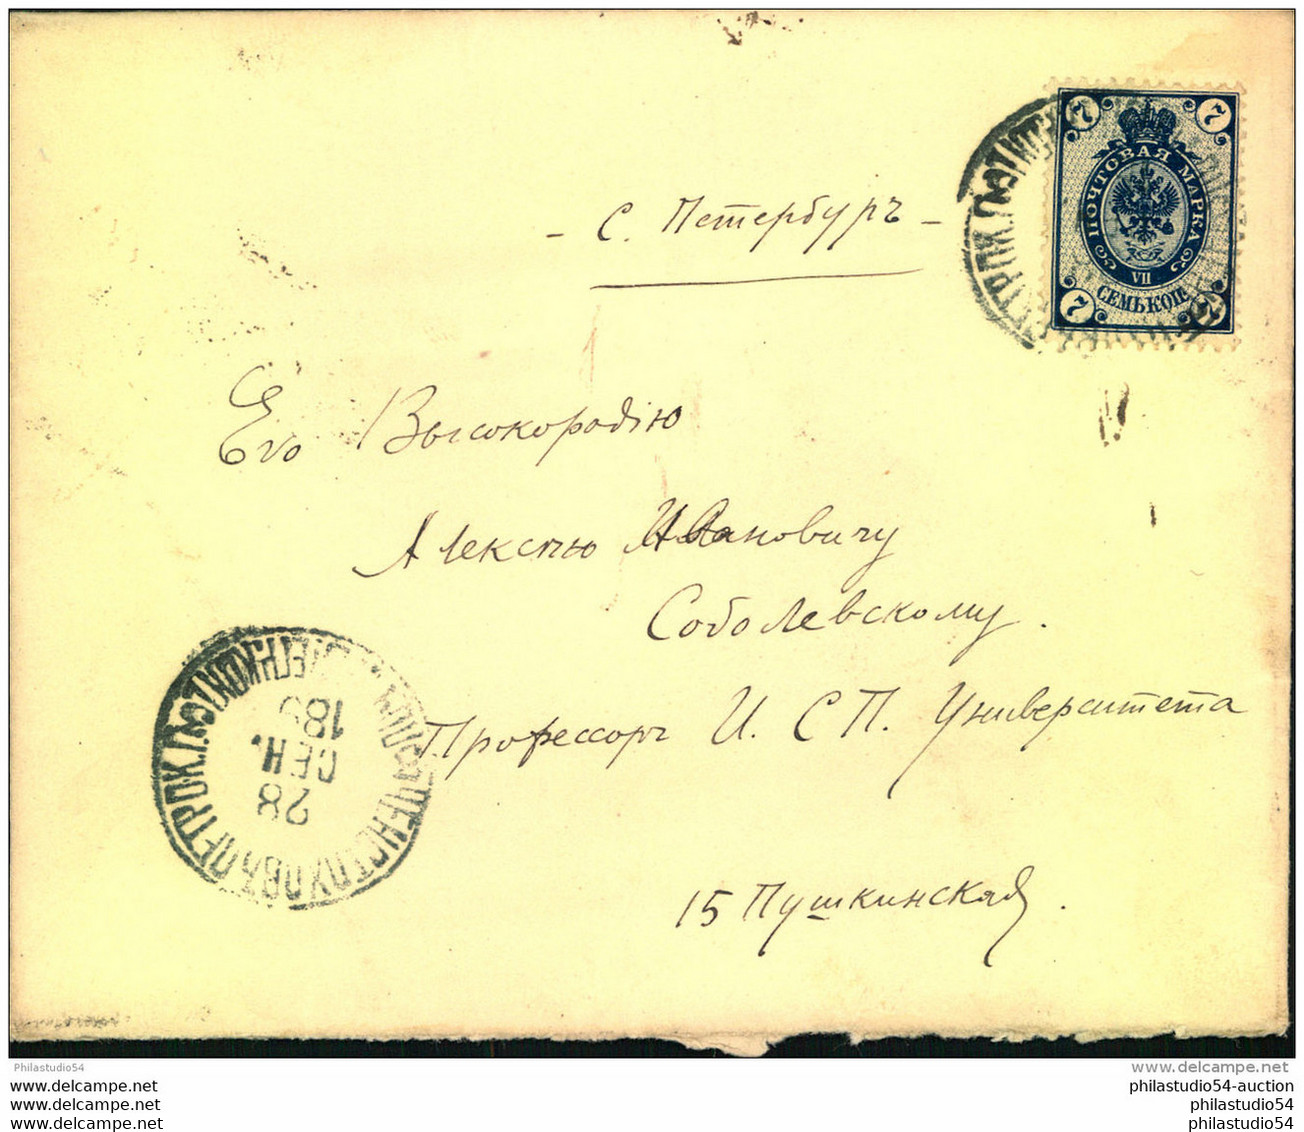 - С. Петербургъ -
7 7
ПОЧТОВАЯ МАРКА
VII
СЕМЬ КОП.
7 7
Его Высокородію
Алексѣю Ивановичу
Соболевскому.
Профессору И. С П. Университета
15 Пушкинская.
28
СЕН.
189
Philastudio54
www.delcampe.net
www.delcampe.net
www.delcampe.net
www.delcampe.net
philastudio54-auction
philastudio54
philastudio54